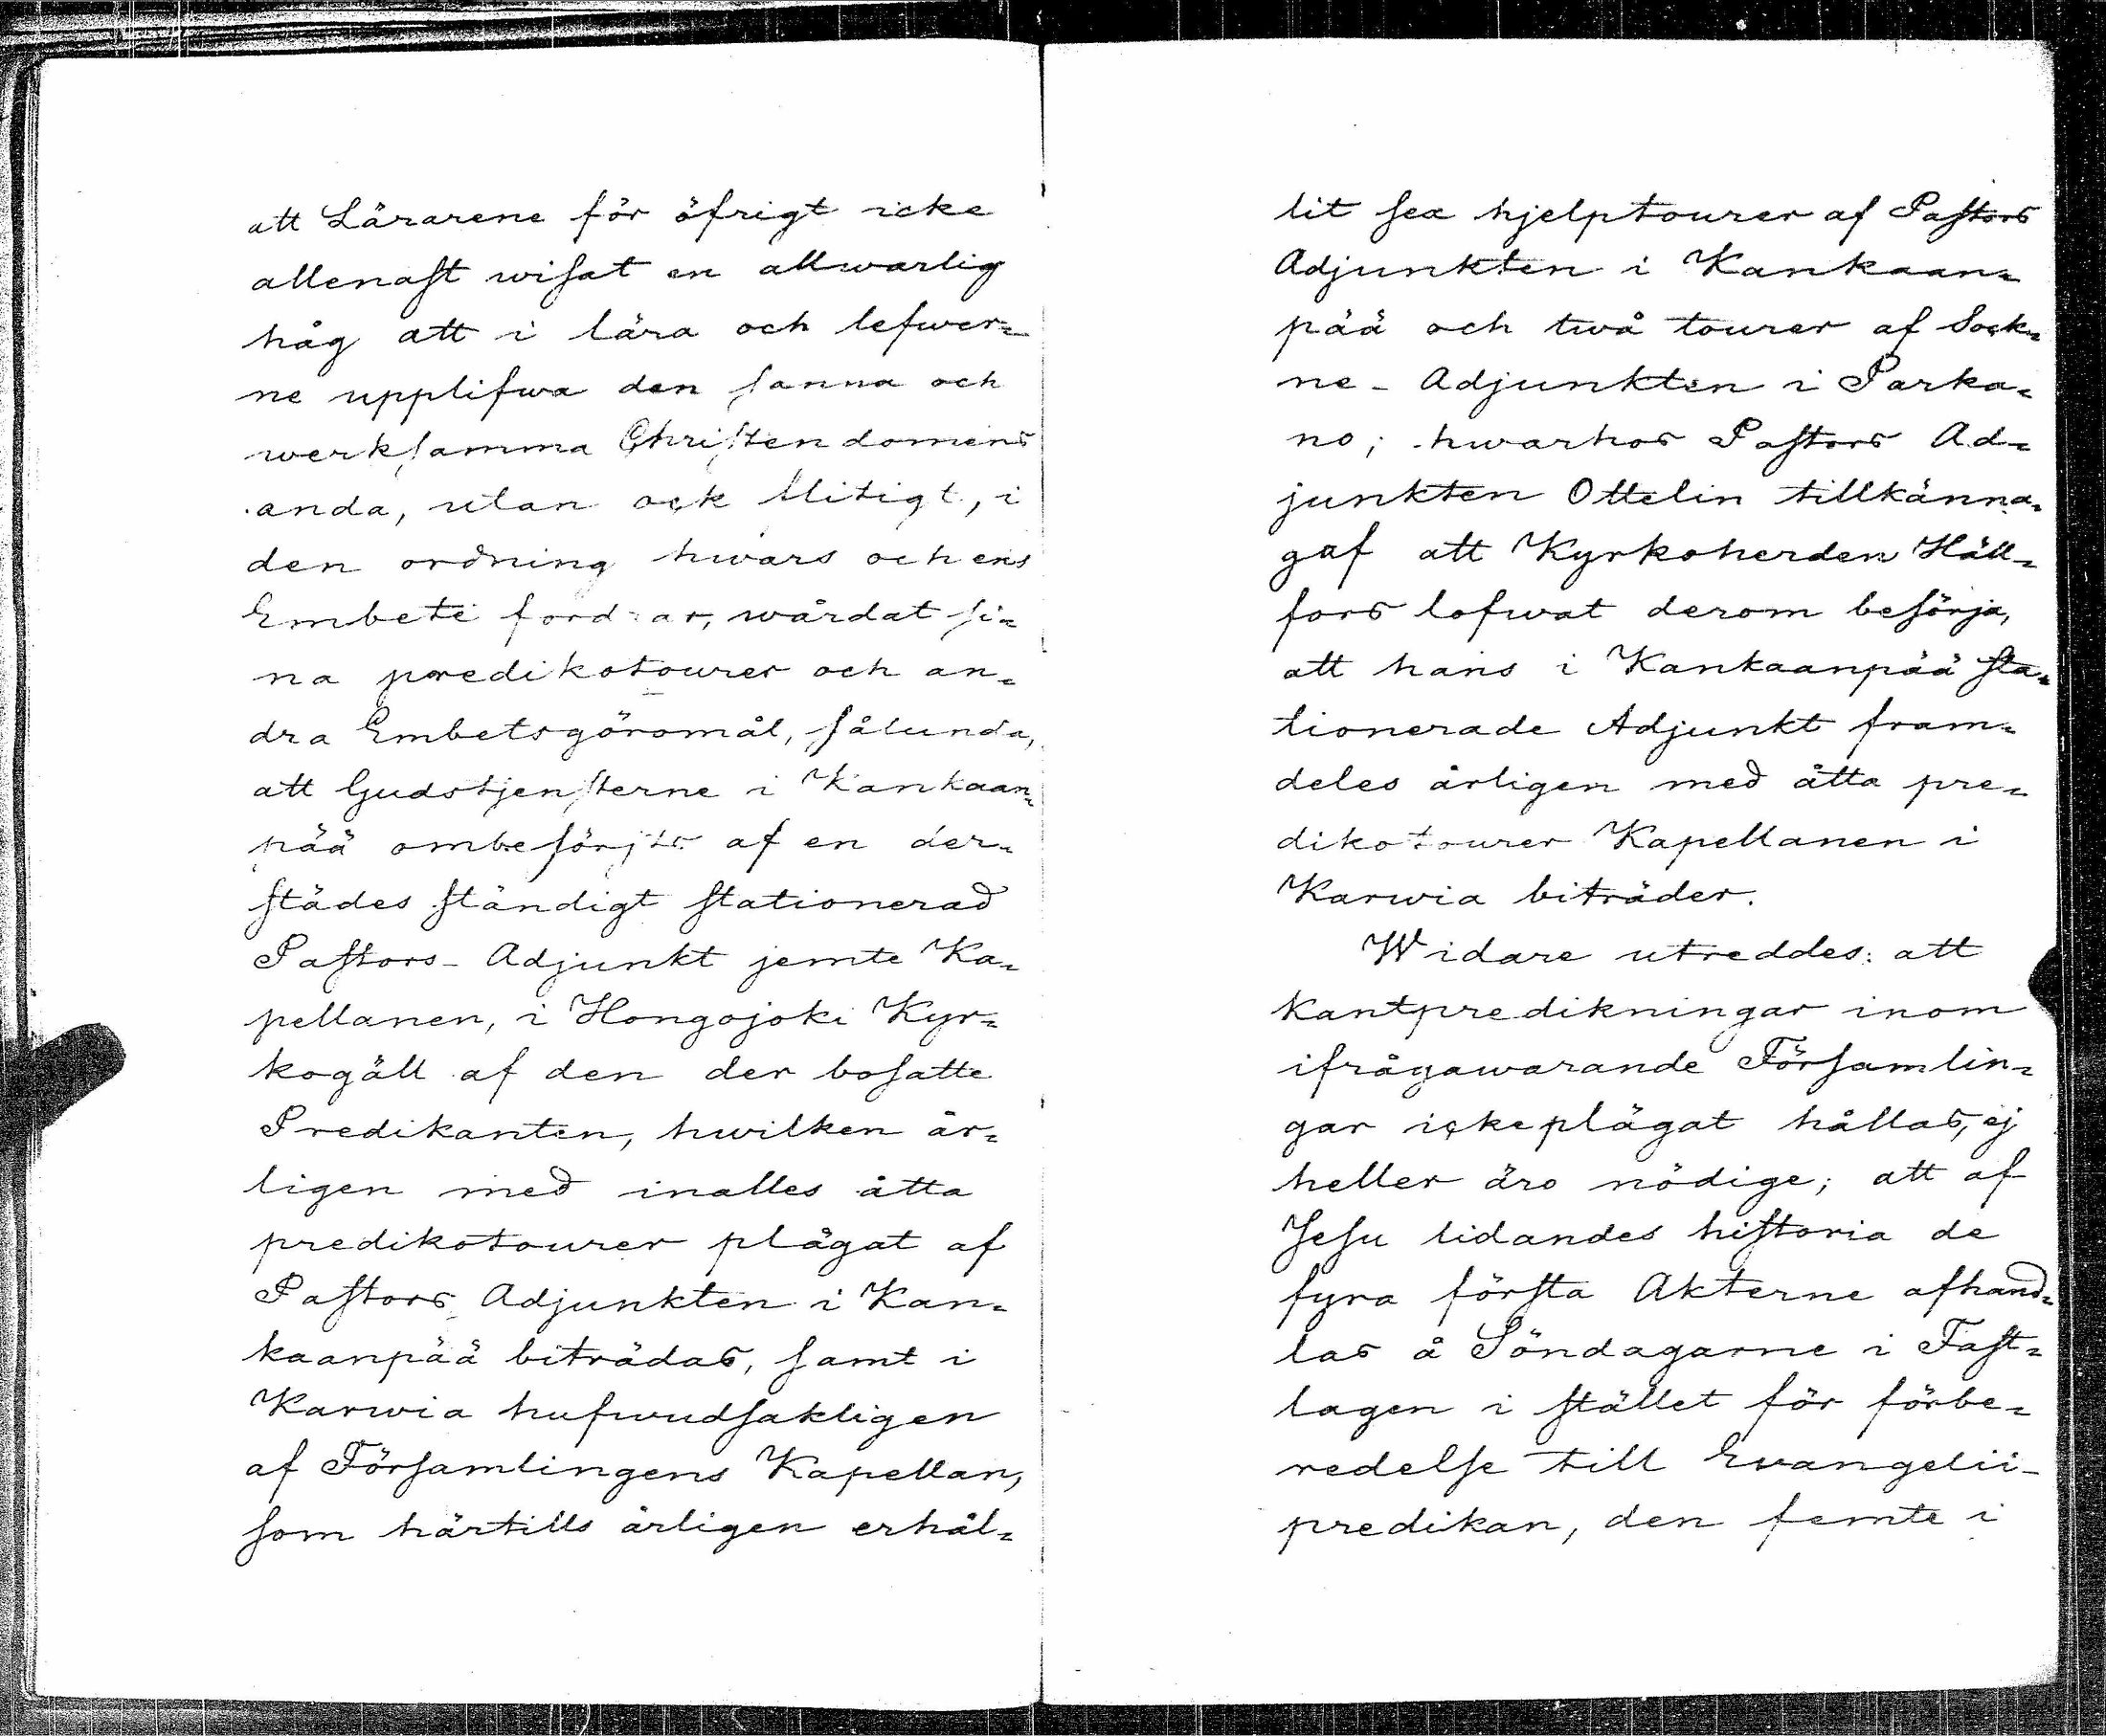 att Lärarene för öfrigt icke
allenast wisat en allwarlig
håg att i lära och lefwer=
ne upplifwa den sanna och
werksamma Christendomens
anda, utan ock flitigt, i
den ordning hwars och ens
Embete fordrar, wårdat si=
na predikotourer och an=
dra Embetsgöromål, sålunda,
att Gudstjensterne i Kankaan=
pää ombesörjts af en der=
städes ständigt stationerad
Pastors- Adjunkt jemte Ka=
pellanen, i Hongojoki Kyr=
kogäll af den der bosatte
Predikanten, hwilken år=
ligen med inalles åtta
predikotourer plägat af
Pastors Adjunkten i Kan=
kaanpää biträdas, samt i
Karwia hufwudsakligen
af Församlingens Kapellan,
som härtills årligen erhål=
lit sex hjelptourer af Pastors
Adjunkten i Kankaan=
pää och två tourer af Sock=
ne- Adjunkten i Parka=
no; hwarhos Pastors Ad=
junkten Ottelin tillkänna=
gaf att Kyrkoherden Häll=
fors lofwat derom besörja,
att hans i Kankaanpää sta=
tionerade Adjunkt fram=
deles årligen med åtta pre=
dikotourer Kapellanen i
Karwia biträder.
Widare utreddes: att
kantpredikningar inom
ifrågawarande Församlin=
gar icke plägat hållas, ej
heller äro nödige; att af
Jesu lidandes historia de
fyra första Akterne afhand=
las å Söndagarne i Fast=
lagen i stället för förbe=
redelse till Evangelii-
predikan, den femte i